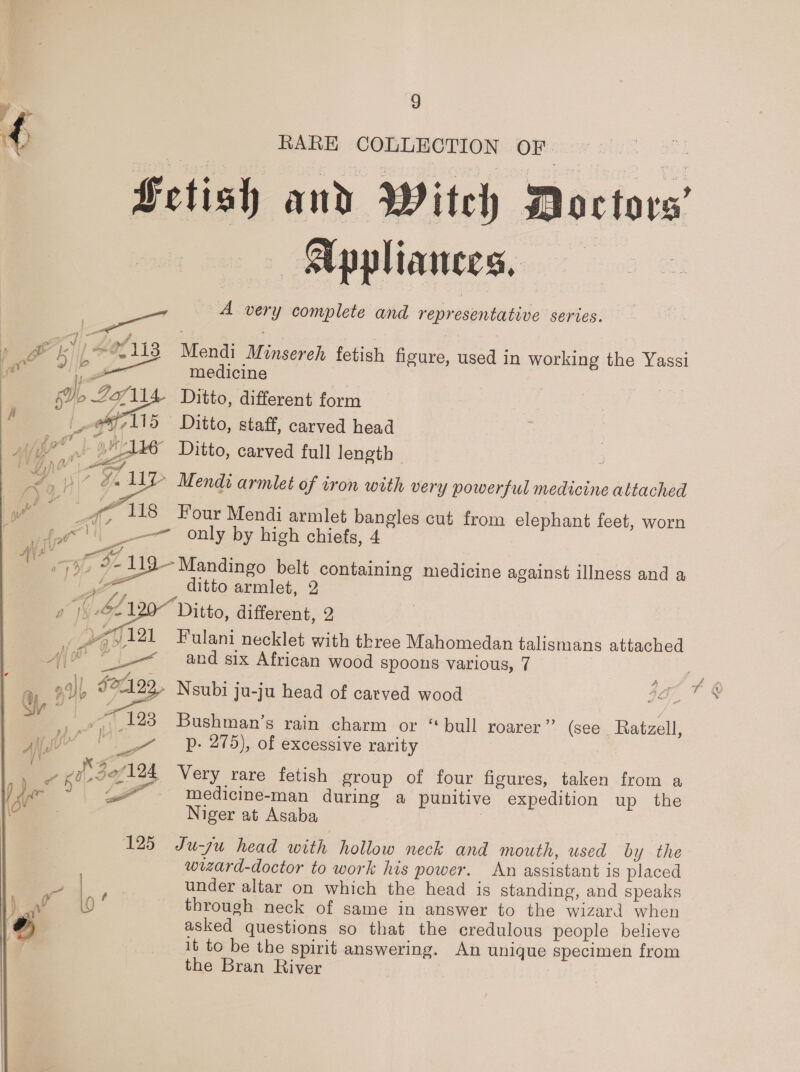 9
RARE COLLECTION OF
Fetish and Witch Doctors’
Appliances.
A very complete and representative series.
113 Mendi Minsereh fetish figure, used in working the Yassi
medicine
114 Ditto, different form
115 Ditto, staff, carved head
116 Ditto, carved full length
117 Mendi armlet of iron with very powerful medicine attached
118 Four Mendi armlet bangles cut from elephant feet, worn
only by high chiefs, 4
119 Mandingo belt containing medicine against illness and a
ditto armlet, 2
120 Ditto, different, 2
121 Fulani necklet with three Mahomedan talismans attached
and six African wood spoons various, 7
122 Nsubi ju-ju head of carved wood
123 Bushman’s rain charm or “bull roarer” (see Ratzell,
p. 275), of excessive rarity
124 Very rare fetish group of four figures, taken from a
medicine-man during a punitive expedition up the
Niger at Asaba
125 Ju-ju head with hollow neck and mouth, used by the
wizard-doctor to work his power. An assistant is placed
under altar on which the head is standing, and speaks
through neck of same in answer to the wizard when
asked questions so that the credulous people believe
it to be the spirit answering. An unique specimen from
the Bran River